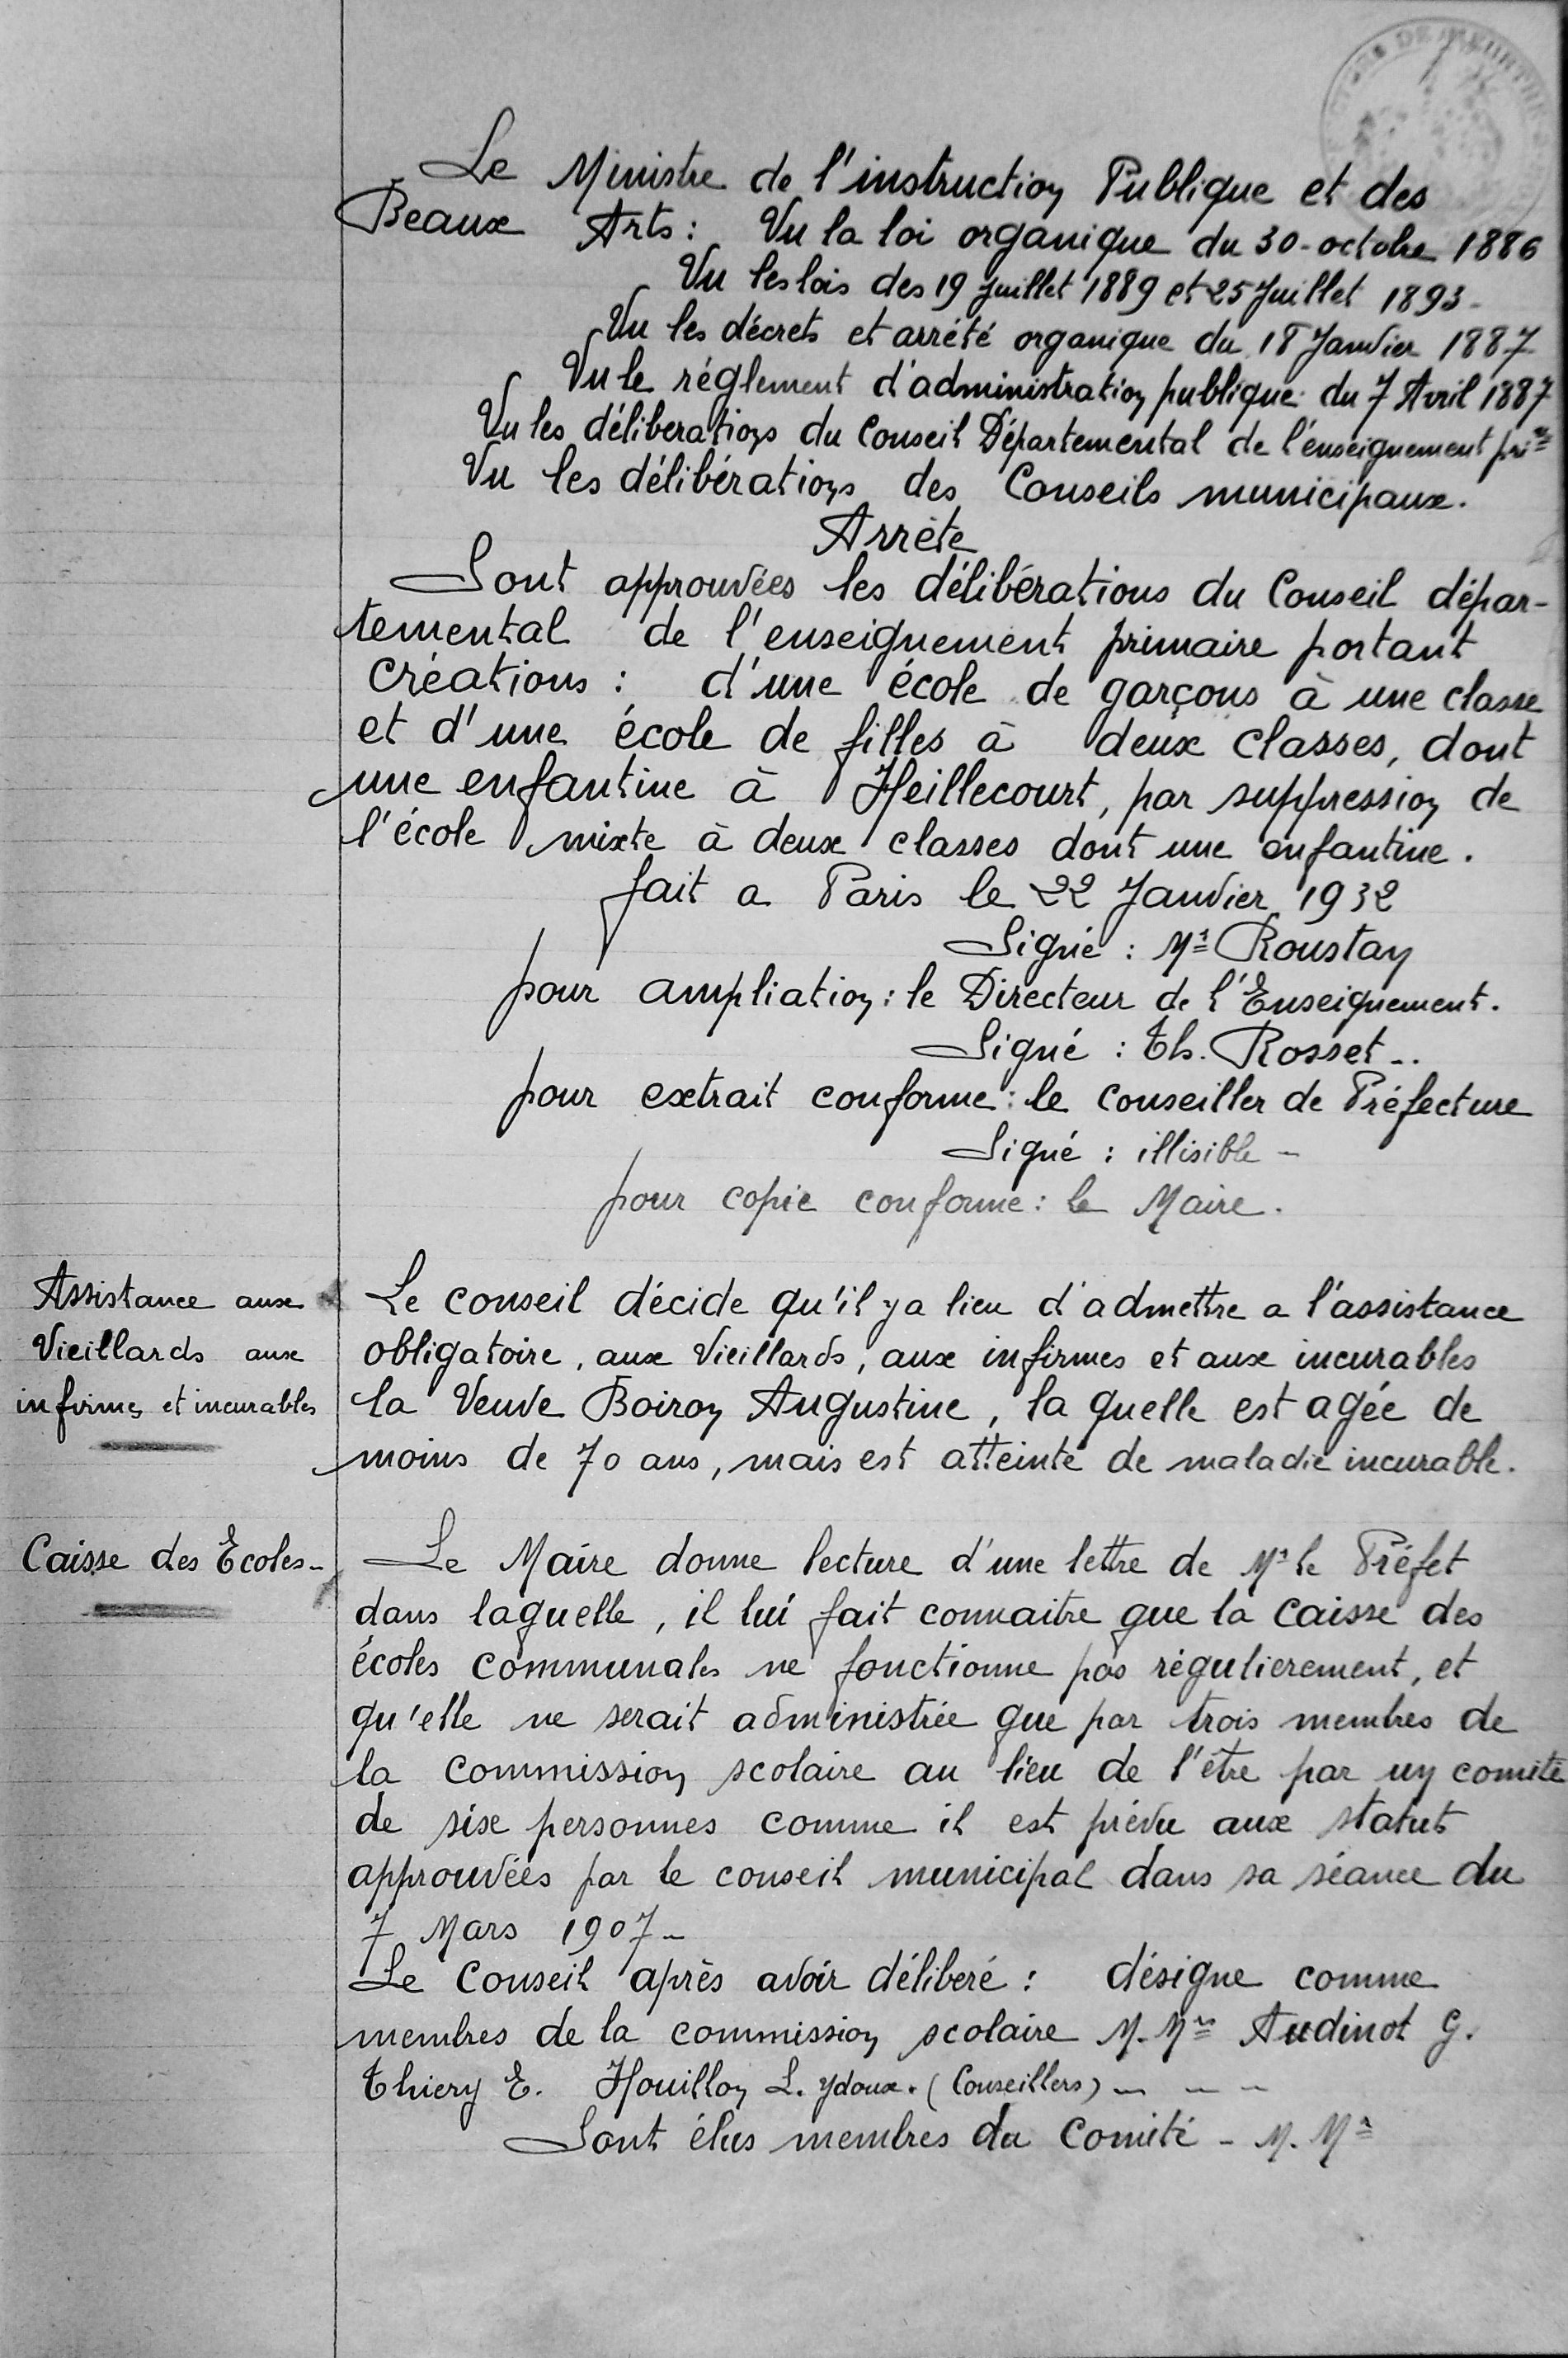 Le Ministre de l'instruction Publique et des
Beaux Arts: Vu la loi organique du 30 - octobre 1886
Vu les lois des 19 Juillet 1889 et 25 Juillet 1893 -
Vu les décrets et arrété organique du 18 Janvier 1887
Vu le réglement d'administration publique du 7 Avril 1887
Vu les déliberations du Conseil Départemental de l'enseignement pri re
Vu les délibérations des Conseils municipaux.
Arrète
Sont approuvées les délibérations du Conseil dépar-
temental de l'enseignement primaire portant
créations : d'une école de garçons à une classe
et d'une école de filles à deux classes, dont
une enfantine à Heillecourt, par suppression de
l'école mixte à deux classes dont une enfantine.
fait a Paris le 22 Janvier 1932
Signé : Mr Roustan
pour ampliation : le Directeur de l'Enseignement.
Signé : Th. Rosset -.
pour extrait conforme : le Conseiller de Préfecture
Signé : illisible -
pour copie conforme : le Maire.
Assistance aux
Vieillards aux
infirmes et incurables
Le conseil décide qu'il y a lieu d'admettre a l'assistance
obligatoire, aux Vieillards, aux infirmes et aux incurables
la Veuve Boiron Augustine, la quelle est agée de
moins de 70 ans, mais est atteinte de maladie incurable.
Caisse des Ecoles -
Le Maire donne lecture d'une lettre de Mr le Préfet
dans laquelle, il lui fait connaitre que la caisse des
écoles communales ne fonctionne pas régulierement, et
qu'elle ne serait administrée que par trois membres de
la commission scolaire au lieu de l'être par un comité
de six personnes comme il est prévu aux statuts
approuvées par le conseil municipal dans sa séance du
7 Mars 1907 -
Le Conseil après avoir déliberé : désigne comme
membres de la commission scolaire M. Mrs Audinot G.
Thiery E. Houillon L. Ydoux. (Conseillers) - - -
Sont élus membres du Comité - M. Mr